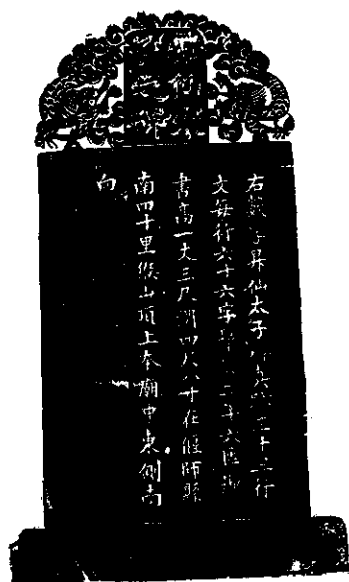 右昇仙太子三十三行
文每行六十六字二年六御
書高一丈三尺濶四尺八寸在偃師縣
南四十里緱山頂上本廟中東側南
向